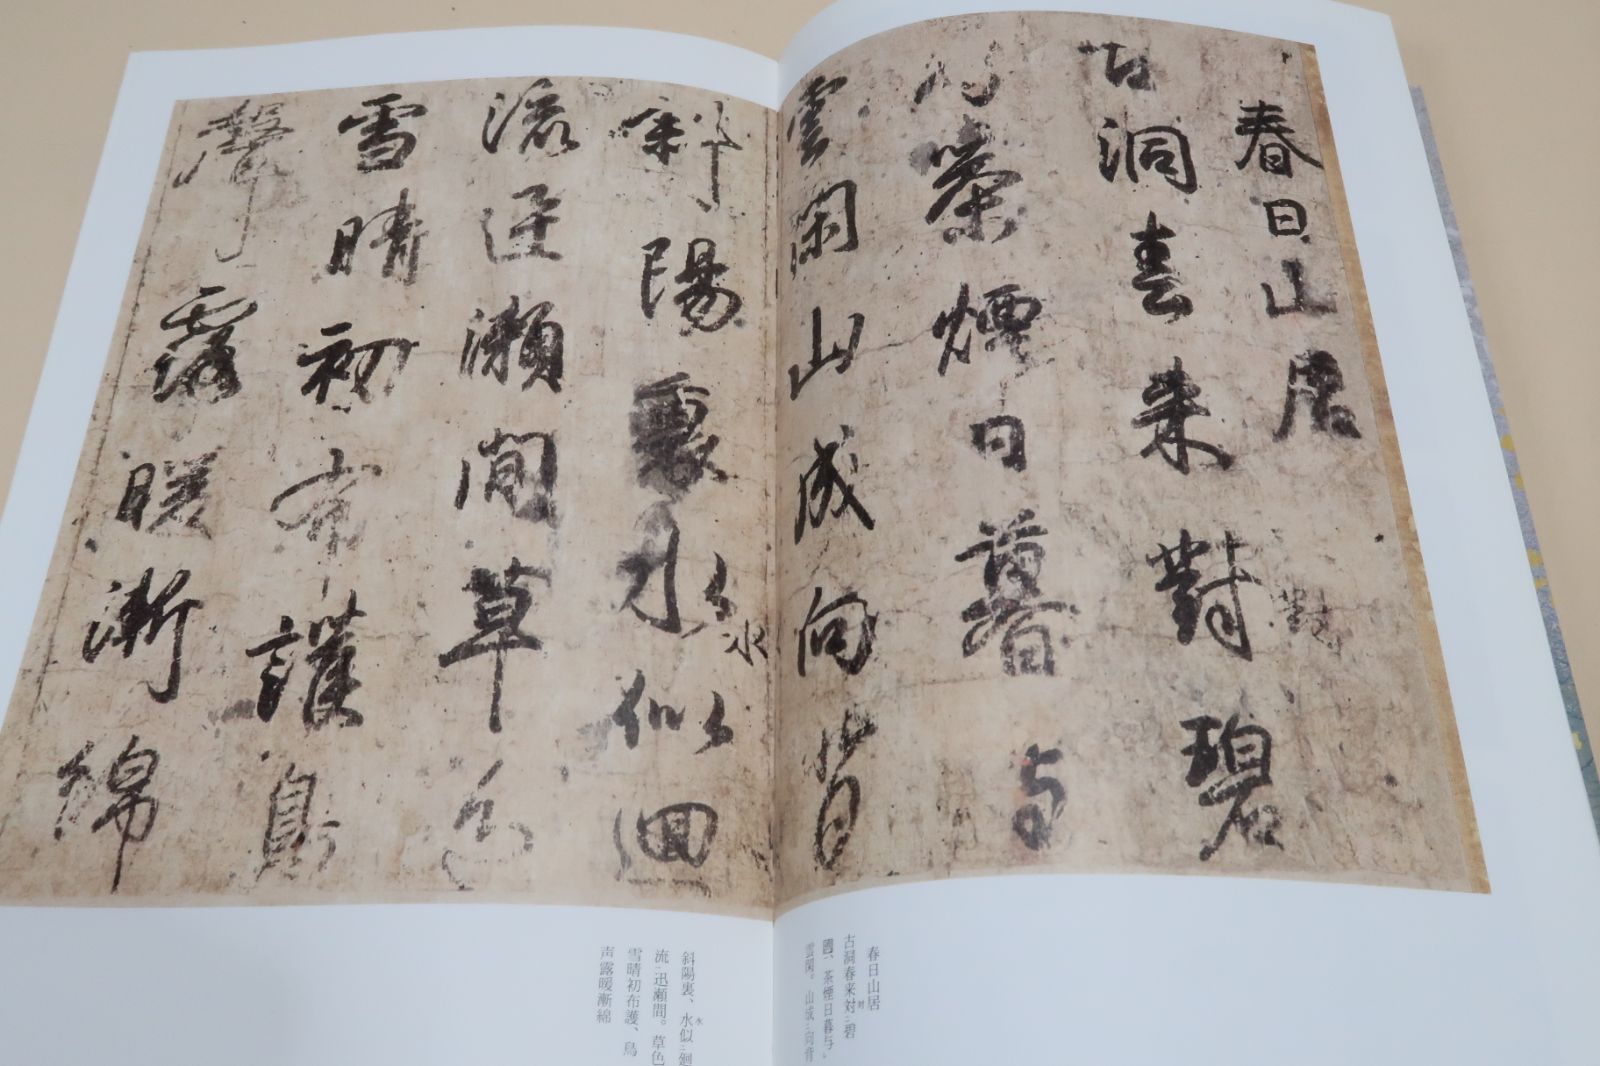 春日山居
古洞春来對碧
對
茶煙日暮与
雲閑山成向背
斜陽裏水似廻
水
流迅瀬間草色
雪晴初布護鳥
聲露暖漸綿
春日山居
古洞春来対ニ碧
対
茶煙日暮与
雲閑。山成ニ向背
斜陽裏、水似ニ廻
水
流ニ迅瀬間。草色
雪晴初布護、鳥
声露暖漸綿